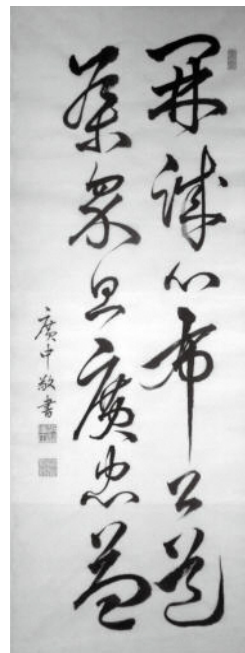 開誠心布公道
集衆思廣忠益
廣中敬書